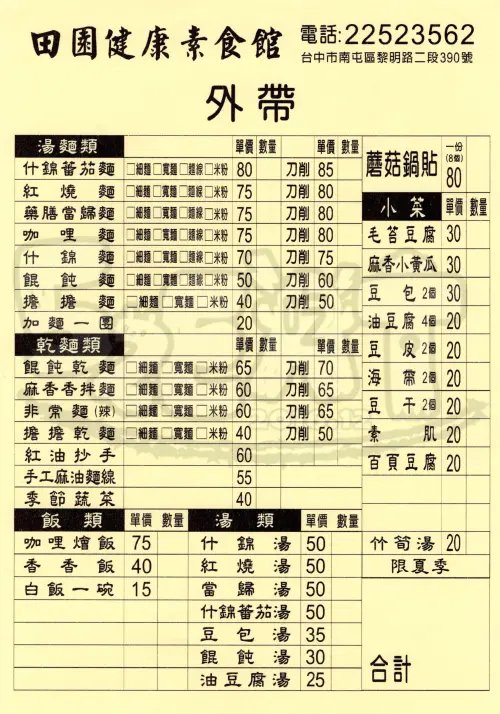 田園健康素食館
電話:22523562
台中市南屯區黎明路二段390號
外帶
湯麵類 單價 數量 單價 數量
什錦蕃茄麵 □細麵□寬麵□麵線□米粉 80 刀削 85
紅燒麵 □細麵□寬麵□麵線□米粉 75 刀削 80
藥膳當歸麵 □細麵□寬麵□麵線□米粉 75 刀削 80
咖哩麵 □細麵□寬麵□麵線□米粉 75 刀削 80
什錦麵 □細麵□寬麵□麵線□米粉 70 刀削 75
餛飩麵 □細麵□寬麵□麵線□米粉 50 刀削 60
擔擔麵 □細麵□寬麵□麵線□米粉 40 刀削 50
加麵一團 20
乾麵類 單價 數量 單價 數量
餛飩乾麵 □細麵□寬麵□米粉 65 刀削 70
麻香香拌麵 □細麵□寬麵□米粉 60 刀削 65
非常麵(辣) □細麵□寬麵□米粉 60 刀削 65
擔擔乾麵 □細麵□寬麵□米粉 40 刀削 50
紅油抄手 60
手工麻油麵線 55
季節蔬菜 40
飯類 單價 數量
咖哩燴飯 75
香香飯 40
白飯一碗 15
湯類 單價 數量
什錦湯 50
紅燒湯 50
當歸湯 50
什錦蕃茄湯 50
豆包湯 35
餛飩湯 30
油豆腐湯 25
蘑菇鍋貼 一份(8個) 80
小菜 單價 數量
毛苔豆腐 30
麻香小黃瓜 30
豆包2個 30
油豆腐4個 20
豆皮2個 20
海帶2個 20
豆干2個 20
素肌 20
百頁豆腐 20
竹筍湯 20
限夏季
合計